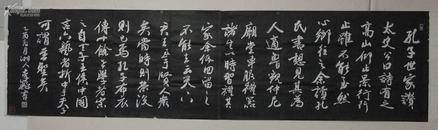 孔子世家讚
太史公曰詩有之
高山仰止景行行
止雖不能至然
心鄉往之余讀孔
氏書想見其為
人適魯觀仲尼
廟堂車服禮器
諸生以時習禮其
家余低回留之
不能去云天下
君王至于賢人衆
矣當時則榮沒
則已焉孔子布衣
傳十餘世學者宗
之自天子王侯中國
言六藝者折中于夫子
可謂至聖矣